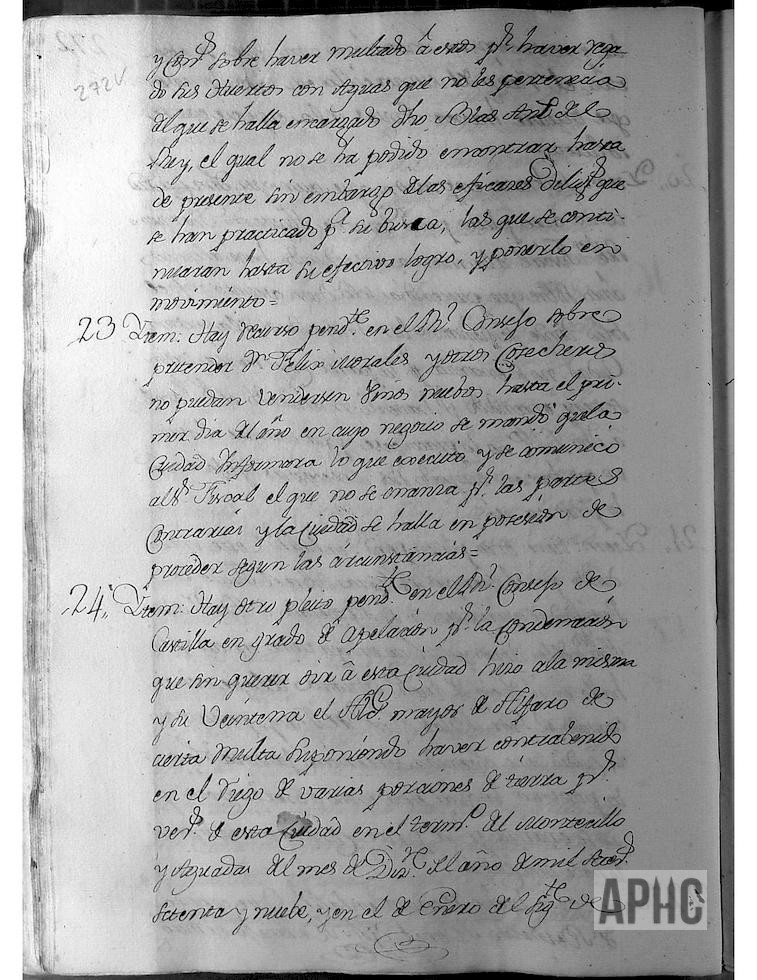 272v
y Conss. sobre haver multado â estos pr. haver rega
do sus Huertos con Aguas que no les pertenecia
del que se halla encargado dho. Blas Anto. del
Rey, el qual no se ha podido encontrar hasta
de presente sin embargo de las eficaces diligs. que
se han practicado pa. su busca, las que se conti-
nuaran hasta su efectivo logro, y ponerlo en
movimiento=
23 Ytem: Hay recurso pendte. en el Rl. Consejo sobre
pretender Dn. Felix Morales y otros Cosecheros
no puedan venderse Vinos nuebos hasta el pri-
mer dia del año en cuyo negocio se mandó que la
Ciudad Informara lo que executó y se comunicó
al Sr. Fiscal el que no se enanza pr. las partes
Contrarias y la Ciudad se halla en posesion de
proceder segun las circunstancias=
24,, Ytem: Hay otro pleito pendte. en el Rl. Consejo de
Castilla en grado de Apelacion pr. la Condenacion
que sin querer oir â esta Ciudad hizo a la misma
y su Veintena el Alce. mayor de Alfaro de
cierta Multa suponiendo haver contrabenido
en el Riego de varias porciones de tierra pr.
vers. de esta Ciudad en el termo. del Montecillo
y Aguadas del mes de Dize. del año de mil setess.
setenta y nuebe, y en el de Enero del sigte. de
APHC